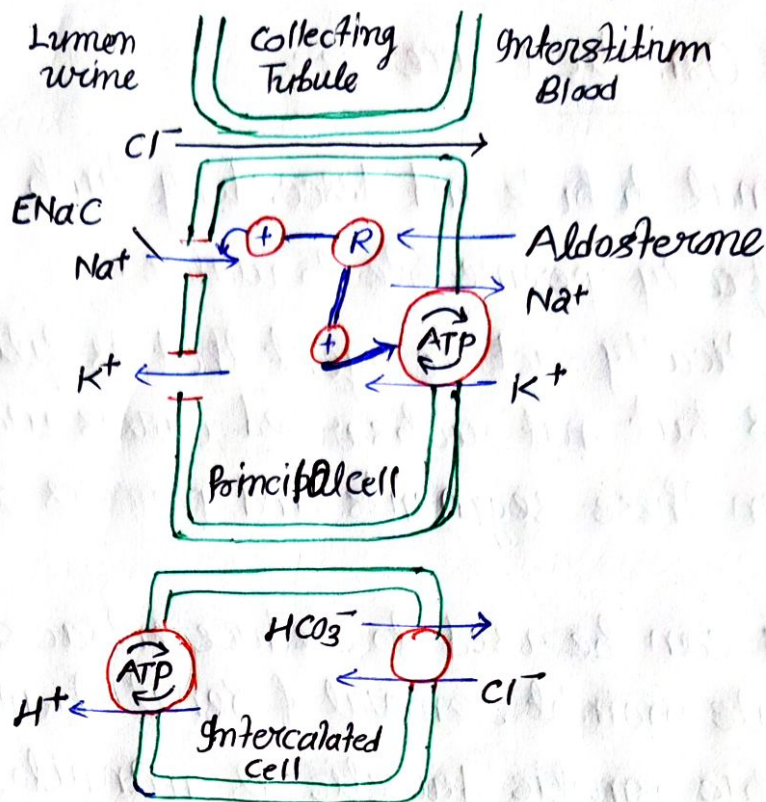 Lumen
urine
Collecting
Tubule
Interstitium
Blood
Cl⁻
ENaC
Na⁺
+
R
Aldosterone
Na⁺
+
ATP
K⁺
K⁺
Principal cell
HCO₃⁻
ATP
Cl⁻
H⁺
Intercalated
cell